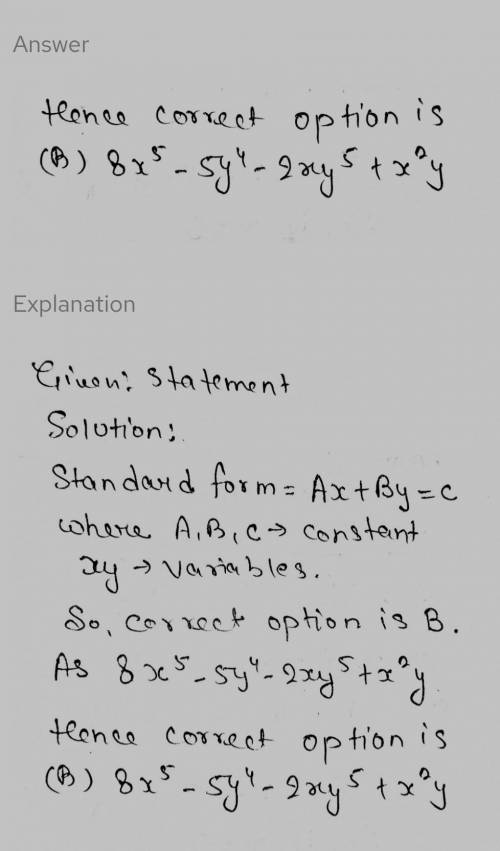 Answer
Hence correct option is
(B) 8x⁵ - 5y⁴ - 2xy⁵ + x²y
Explanation
Given: Statement
Solution:
Standard form = Ax + By = c
where A, B, c → constant
xy → variables.
So, correct option is B.
As 8x⁵ - 5y⁴ - 2xy⁵ + x²y
Hence correct option is
(B) 8x⁵ - 5y⁴ - 2xy⁵ + x²y